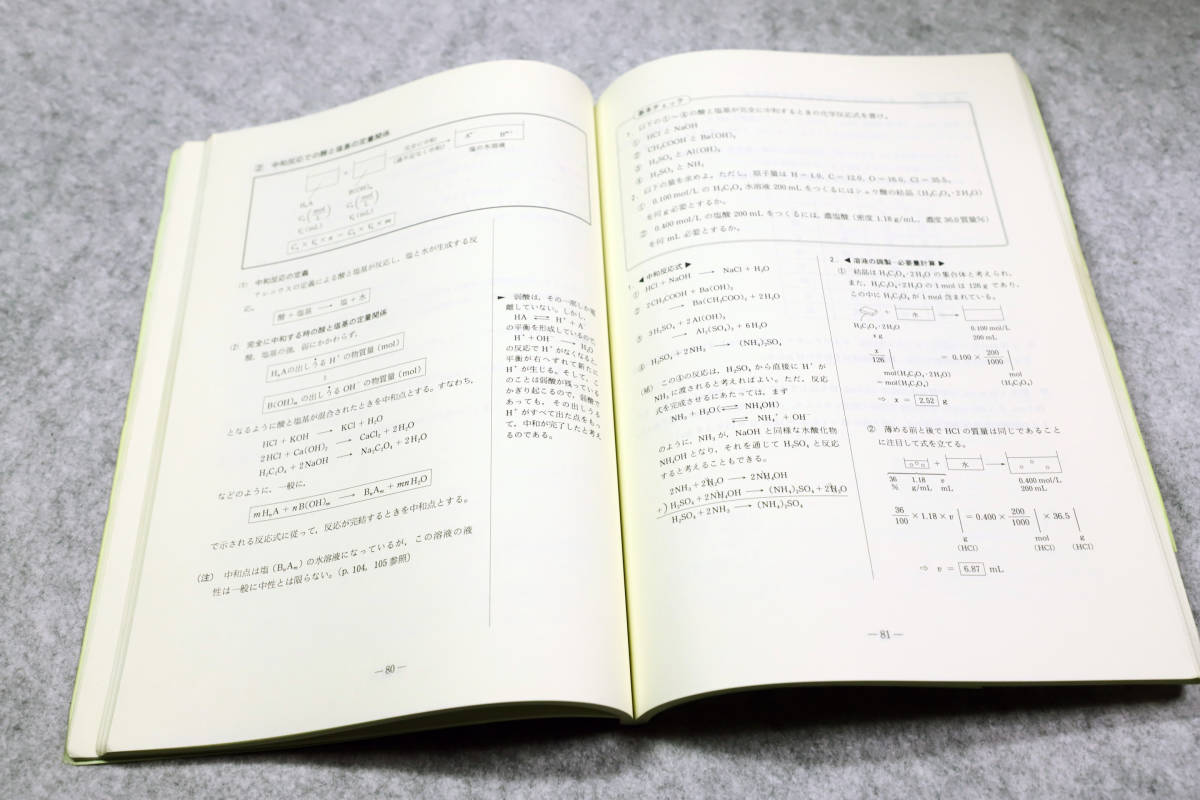 ② 中和反応での酸と塩基の定量関係
HₙA
B(OH)ₘ
完全に中和
(過不足なく中和)
Aⁿ⁻ Bᵐ⁺
塩の水溶液
C₁(mol/L)
C₂(mol/L)
V₁(mL)
V₂(mL)
C₁×V₁×n＝C₂×V₂×m
(1) 中和反応の定義
アレニウスの定義による酸と塩基が反応し，塩と水が生成する反応。
酸＋塩基 ⟶ 塩＋水
(2) 完全に中和する時の酸と塩基の定量関係
酸，塩基の強，弱にかかわらず，
HₙAの出しうる H⁺ の物質量 (mol)
B(OH)ₘ の出しうる OH⁻ の物質量 (mol)
となるように酸と塩基が混合されたときを中和点とする。すなわち，
HCl + KOH ⟶ KCl + H₂O
2HCl + Ca(OH)₂ ⟶ CaCl₂ + 2H₂O
H₂C₂O₄ + 2NaOH ⟶ Na₂C₂O₄ + 2H₂O
などのように，一般に，
mHₙA + nB(OH)ₘ ⟶ BₙAₘ + mnH₂O
で示される反応式に従って，反応が完結するときを中和点とする。
(注) 中和点は塩 (BₙAₘ) の水溶液になっているが，この溶液の液
性は一般に中性とは限らない。(p. 104，105 参照)
弱酸は，その一部しか電
離していない。しかし，
HA ⇄ H⁺ + A⁻
の平衡を形成しているので，
H⁺ + OH⁻ ⟶ H₂O
の反応で H⁺ がなくなると，
平衡が右へずれて新たに
H⁺ が生じる。そして，こ
のことは弱酸が残っている
かぎり起こるので，弱酸で
あっても，その出しうる
H⁺ がすべて出た点をもっ
て，中和が完了したと考え
るのである。
—80—
基本チェック
1. 以下の①〜④の酸と塩基が完全に中和するときの化学反応式を書け。
① HCl と NaOH
② CH₃COOH と Ba(OH)₂
③ H₂SO₄ と Al(OH)₃
④ H₂SO₄ と NH₃
2. 以下の量を求めよ。ただし，原子量は H＝1.0，C＝12.0，O＝16.0，Cl＝35.5。
① 0.100 mol/L の H₂C₂O₄ 水溶液 200 mL をつくるにはシュウ酸の結晶 (H₂C₂O₄·2H₂O)
を何 g 必要とするか。
② 0.400 mol/L の塩酸 200 mL をつくるには，濃塩酸 (密度 1.18 g/mL，濃度 36.0 質量％)
を何 mL 必要とするか。
1. ◀中和反応式▶
① HCl + NaOH ⟶ NaCl + H₂O
② 2CH₃COOH + Ba(OH)₂
⟶ Ba(CH₃COO)₂ + 2H₂O
③ 3H₂SO₄ + 2Al(OH)₃
⟶ Al₂(SO₄)₃ + 6H₂O
④ H₂SO₄ + 2NH₃ ⟶ (NH₄)₂SO₄
(補) この④の反応は，H₂SO₄ から直接に H⁺ が
NH₃ に渡されると考えればよい。ただ，反応
式を完成させるにあたっては，まず
NH₃ + H₂O (⇄ NH₄OH)
⇄ NH₄⁺ + OH⁻
のように，NH₃ が，NaOH と同様な水酸化物
NH₄OH となり，それを通じて H₂SO₄ と反応
すると考えることもできる。
2NH₃ + 2H₂O ⟶ 2NH₄OH
+) H₂SO₄ + 2NH₄OH ⟶ (NH₄)₂SO₄ + 2H₂O
H₂SO₄ + 2NH₃ ⟶ (NH₄)₂SO₄
2. ◀溶液の調製—必要量計算▶
① 結晶は H₂C₂O₄·2H₂O の集合体と考えられ，
また，H₂C₂O₄·2H₂O の 1 mol は 126 g であり，
この中に H₂C₂O₄ が 1 mol 含まれている。
＋ 水 ⟶
H₂C₂O₄·2H₂O 0.100 mol/L
x g 200 mL
x/126 | ＝ 0.100 × 200/1000 |
mol(H₂C₂O₄·2H₂O) mol
＝mol(H₂C₂O₄) (H₂C₂O₄)
⇒ x ＝ 2.52 g
② 薄める前と後で HCl の質量は同じであること
に注目して式を立てる。
＋ 水 ⟶
36 1.18 v 0.400 mol/L
% g/mL mL 200 mL
36/100 × 1.18 × v | ＝ 0.400 × 200/1000 | × 36.5 |
g mol g
(HCl) (HCl) (HCl)
⇒ v ＝ 6.87 mL
—81—